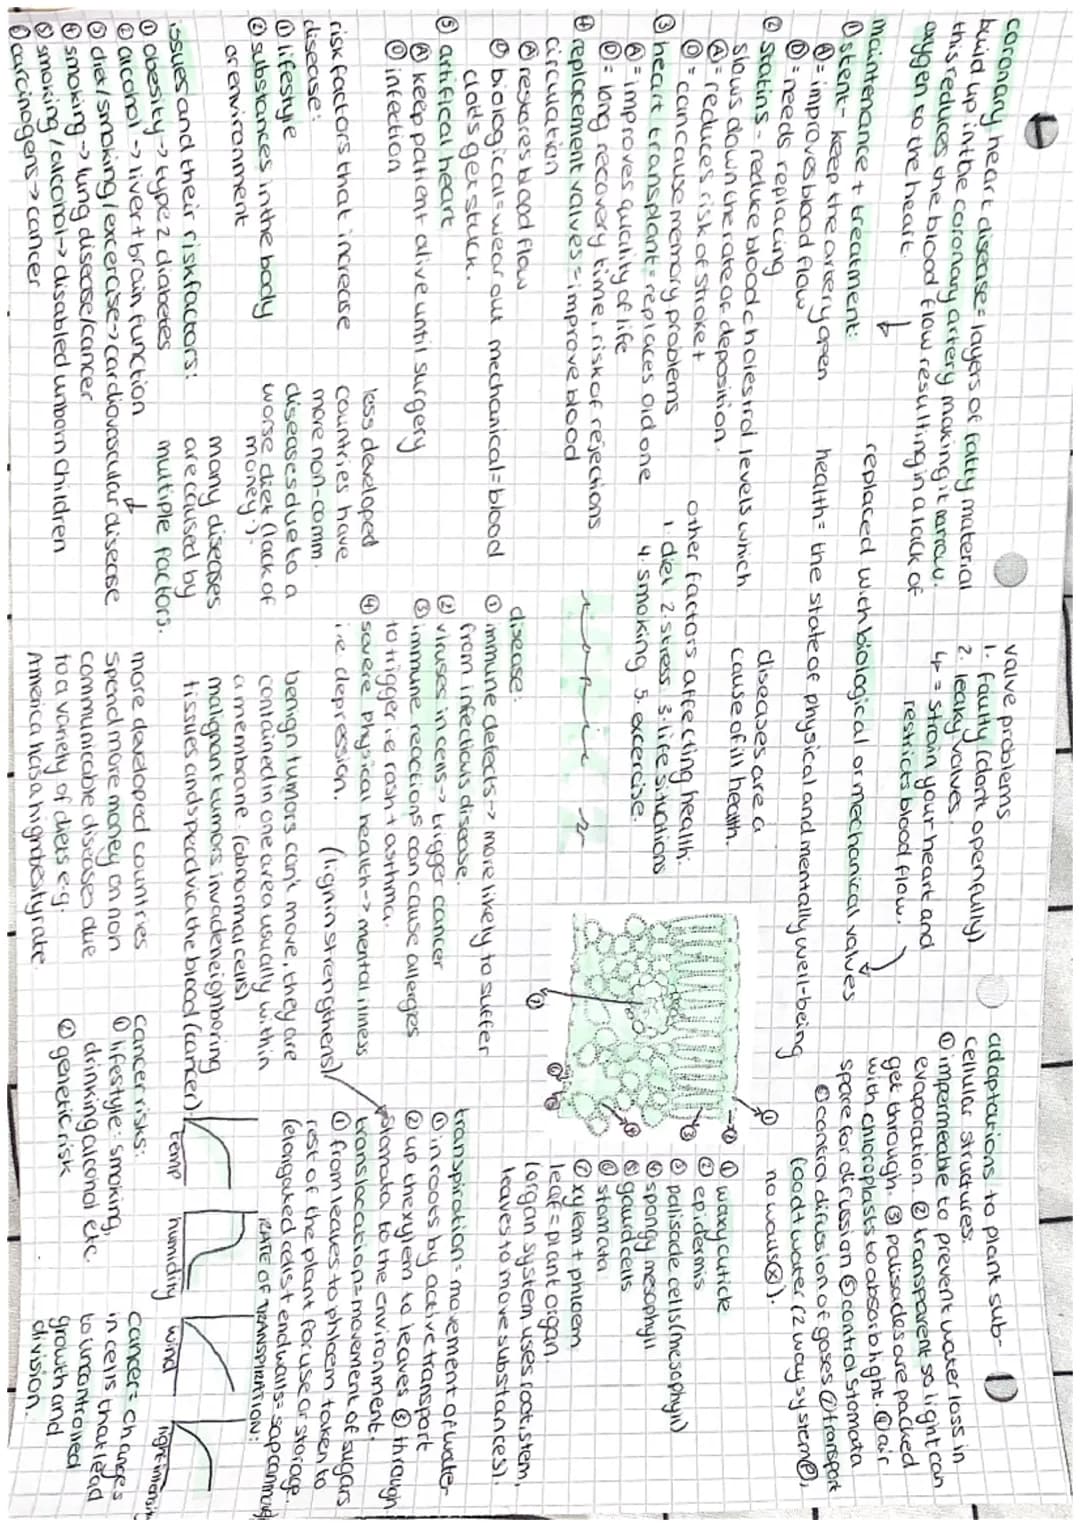 coronary heart disease = layers of fatty material
buid up in the coronary artery making it narrow.
this reduces the blood flow resulting in a lack of
oxygen to the heart.
maintenance + treatment:
① stent - keep the artery open
Ⓐ = improves blood flow
Ⓓ = needs replacing
② statins - reduce blood cholesterol levels which
slows down the rate of deposition.
Ⓐ = reduces risk of stroke +
Ⓓ = can cause memory problems
③ heart transplant = replaces old one
Ⓐ = improves quality of life
Ⓓ = long recovery time, risk of rejections
④ replacement valves = improve blood
circulation
Ⓐ restores blood flow
Ⓓ biological = wear out mechanical = blood
clots get stuck.
⑤ artifical heart
Ⓐ keep patient alive until surgery
Ⓓ infection
risk factors that increase
disease:
① lifestyle
② substances in the body
or environment
issues and their risk factors:
① obesity → type 2 diabetes
② alcohol → liver + brain function
③ diet/smoking/excercise → cardiovascular disease
④ smoking → lung disease/cancer
⑤ smoking/alcohol → disabled unborn children
⑥ carcinogens → cancer
valve problems
1. faulty (don't open fully)
2. leaky valves.
↳ = strain your heart and
restricts blood flow.
replaced with biological or mechanical valves
health = the state of physical and mentally well-being
diseases are a
cause of ill health.
other factors affecting health:
1. diet 2. stress 3. life situations
4. smoking 5. excercise.
disease:
① immune defects → more likely to suffer
from infectious disease.
② viruses in cells → trigger cancer
③ immune reactions can cause allergies
to trigger ie rash + asthma.
④ severe physical health → mental illness
i.e. depression.
less developed
countries have
more non-comm.
diseases due to a
worse diet (lack of
money).
many diseases
are caused by
multiple factors.
benign tumors can't move, they are
contained in one area usually within
a membrane (abnormal cells)
malignant tumors invade neighboring
tissues and spread via the blood (cancer).
more developed countries
spend more money on non
communicable diseases due
to a variety of diets e.g.
America has a high obesity rate.
cancer risks:
① lifestyle: smoking,
drinking alcohol etc.
② genetic risk
cancer = changes
in cells that lead
to uncontrolled
growth and
division.
adaptations to plant sub-
cellular structures:
① impermeable to prevent water loss in
evaporation. ② transparent so light can
get through. ③ palisades are packed
with chloroplasts to absorb light. ④ air
space for difussion ⑤ control stomata
⑥ control difussion of gases ⑦ transport
food + water (2 way system Ⓟ,
no walls Ⓧ).
① waxy cuticle
② epidermis
③ palisade cells (mesophyll)
④ spongy mesophyll
⑤ gaurd cells
⑥ stomata
⑦ xylem + phloem
leaf = plant organ.
(organ system uses root, stem,
leaves to move substances).
transpiration = movement of water
① in roots by active transport
② up the xylem to leaves ③ through
stomata to the environment.
(lignin strengthens)
translocation = movement of sugars
① from leaves to phloem taken to
rest of the plant for use or storage.
(elongated cells + end walls = sap can move)
RATE OF TRANSPIRATION:
temp
humidity
wind
light intensity